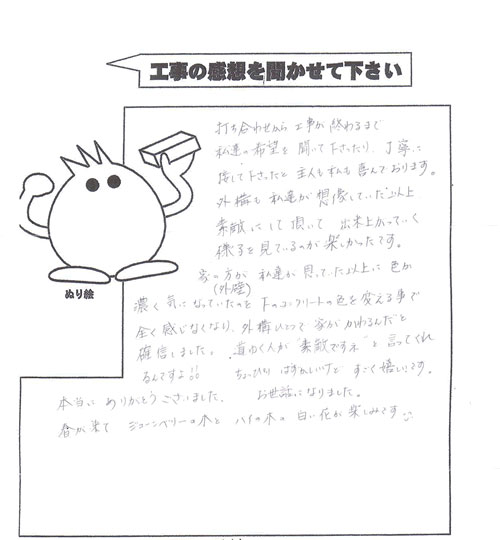 工事の感想を聞かせて下さい
打ち合わせから工事が終わるまで
私達の希望を聞いて下さったり、丁寧に
接して下さったと主人も私も喜んでおります。
外構も私達が想像していた以上
素敵にして頂いて 出来上がっていく
様子を見ているのが楽しかったです。
家の方が 私達が見ていた以上に 色が
(外壁)
濃く気になっていたのを下のコンクリートの色を変える事で
全く感じなくなり、外構ひとつで家がかわるんだと
確信しました。 道ゆく人が"素敵ですネ"と言ってくれ
るんですよ!! ちょっぴりはずかしいけど すごく嬉しいです。
本当にありがとうございました。 お世話になりました。
春が来て ジューンベリーの木と ハイの木の 白い花が楽しみです
ぬり絵